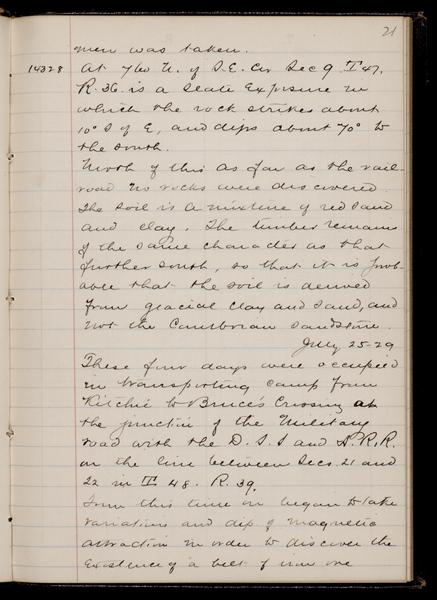 21
men was taken.
14328 At 760 N. of S.E. Cor Sec 9 T 47,
R. 36. is a Slate Exposure in
which the rock strikes about
10° S of E, and dips about 70° to
the south.
North of this as far as the rail-
road no rocks were discovered.
The soil is a mixture of red sand
and clay. The timber remains
of the same character as that
further south, so that it is prob-
able that the soil is derived
from glacial clay and sand, and
not the Cambrian sandstone.
July 25-29
These four days were occupied
in transporting camp from
Ritchie to Bruce's Crossing at
the junction of the Military
road with the D. S. S and A. R. R.
on the line between Secs. 21 and
22 in T 48. R. 39.
From this time on began to take
variations and dip of magnetic
attraction in order to discover the
existence of a belt of iron ore